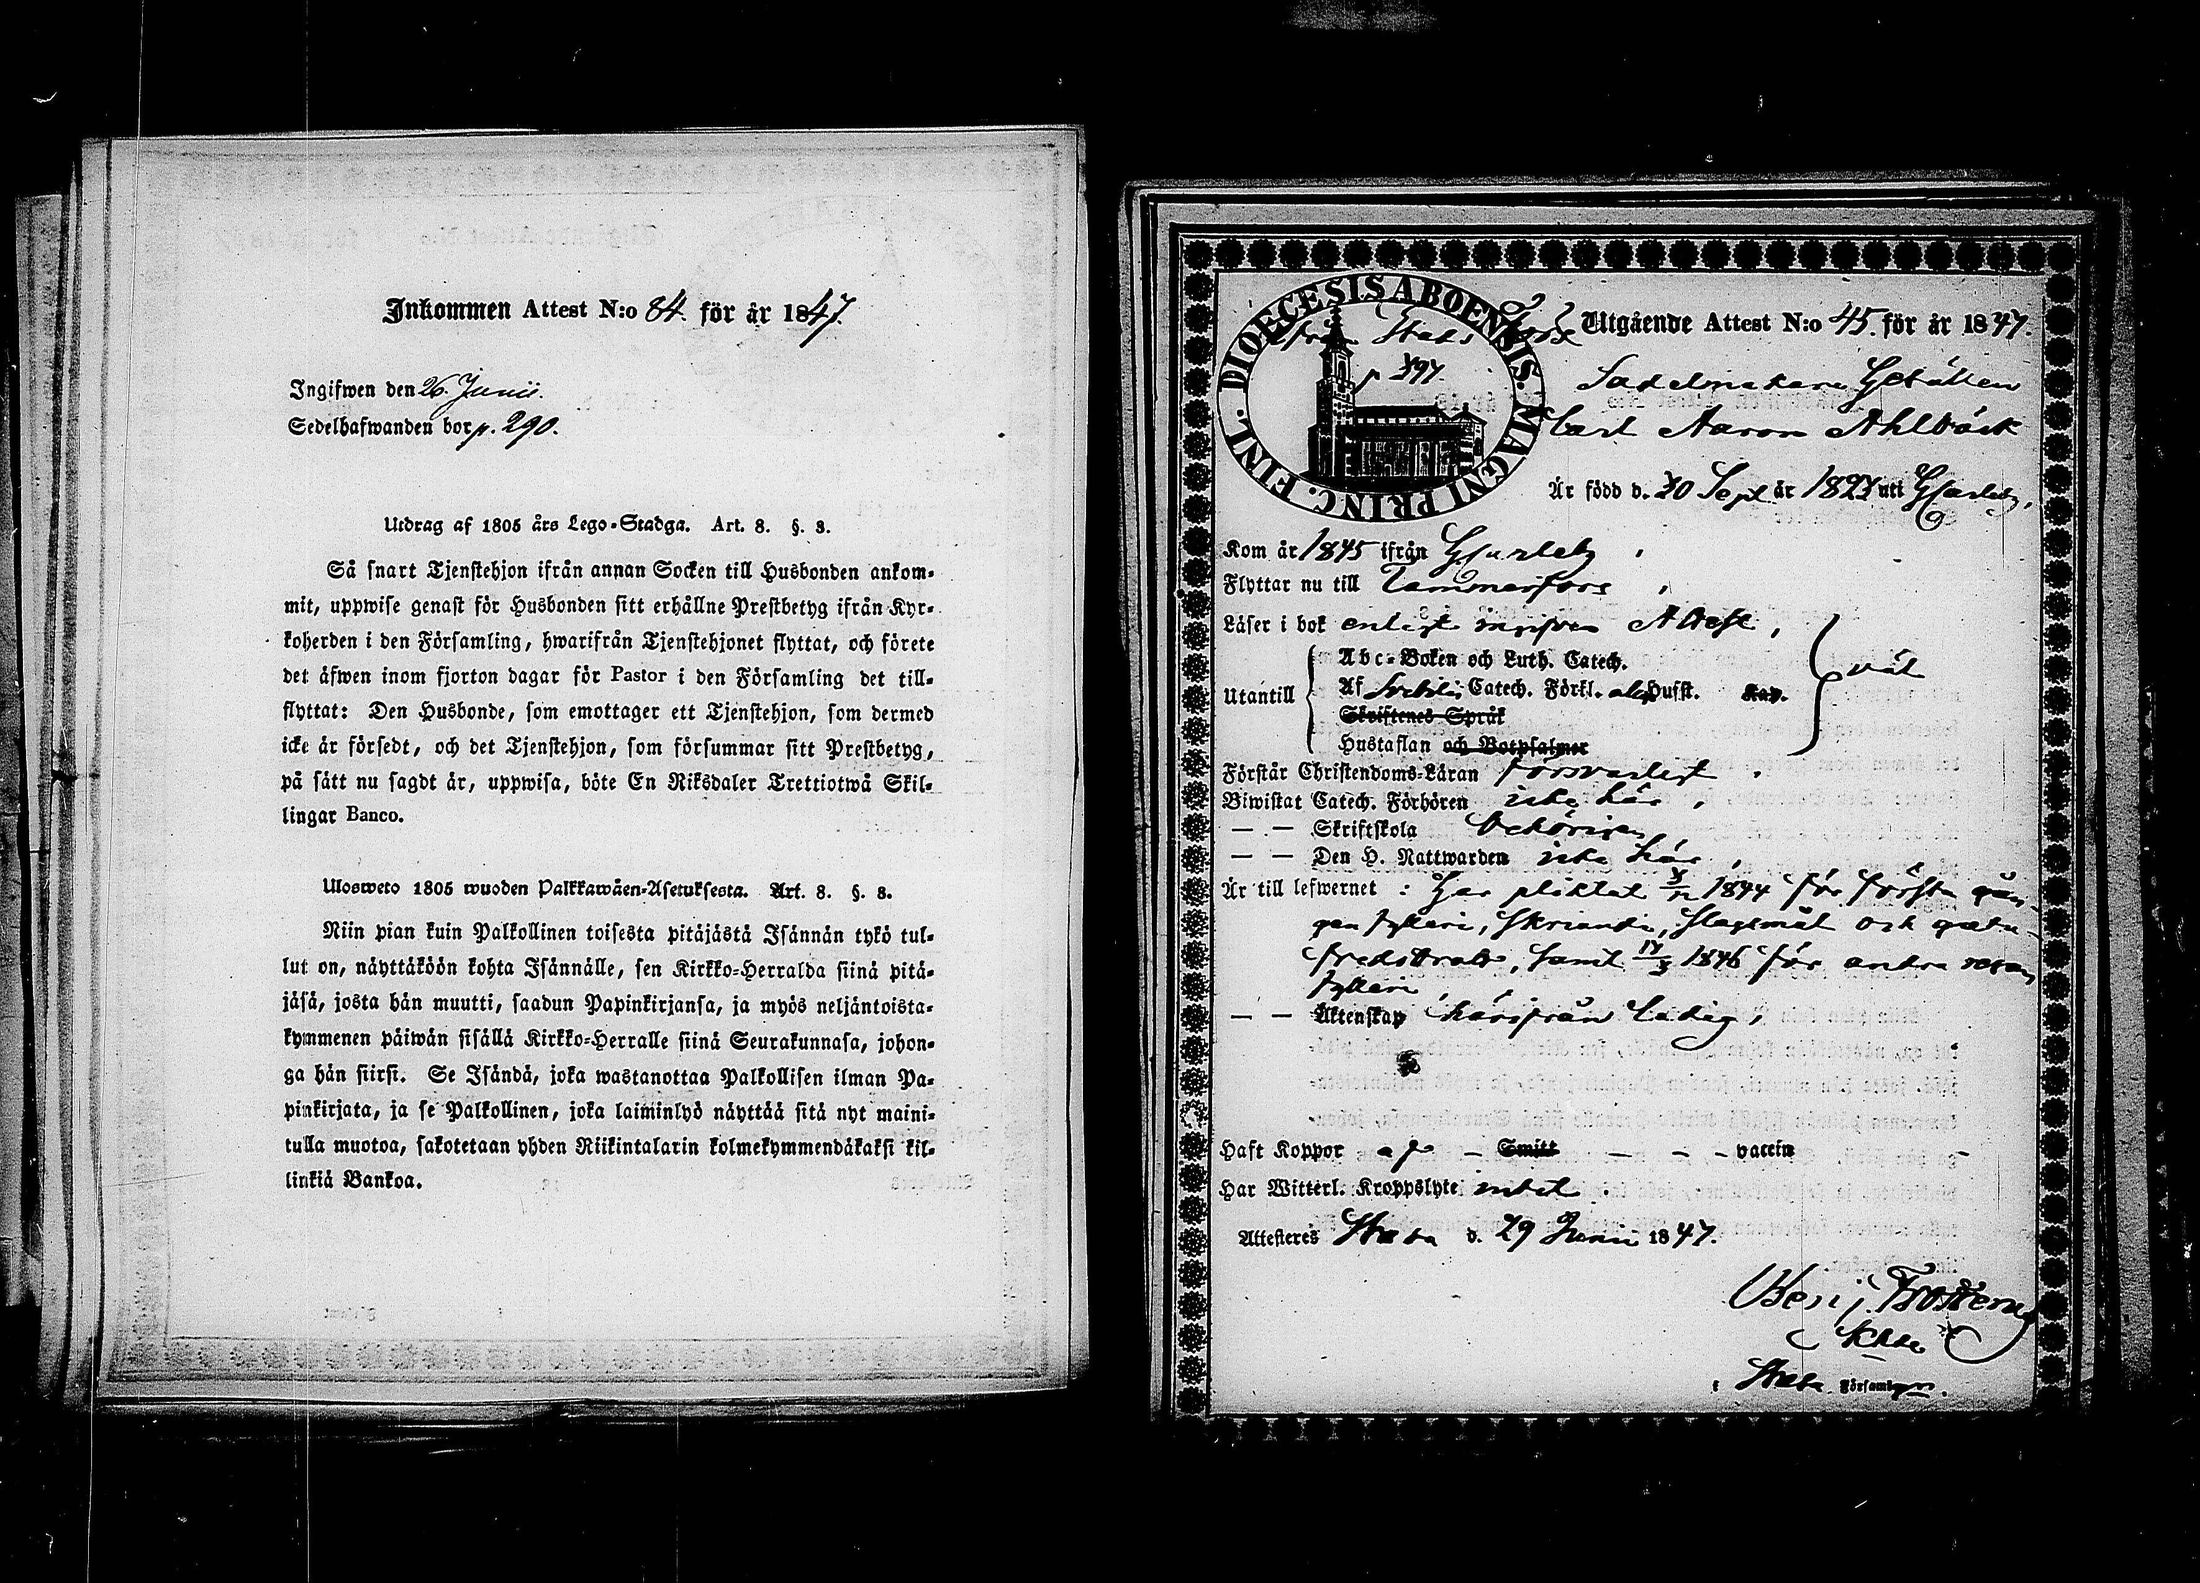 Inkommen Attest N:o 84. för år 1847.
Ingifwen den 26. Junii.
Sedelhafwanden bor p. 290.
Utdrag af 1805 års Lego-Stadga. Art. 8. §. 8.
Så snart Tjenstehjon ifrån annan Socken till Husbonden ankom-
mit, uppwise genast för Husbonden sitt erhållne Prestbetyg ifrån Kyr-
koherden i den Församling, hwarifrån Tjenstehjonet flyttat, och förete
det äfwen inom fjorton dagar för Pastor i den Församling det till-
flyttat: Den Husbonde, som emottager ett Tjenstehjon, som dermed
icke är försedt, och det Tjenstehjon, som försummar sitt Prestbetyg,
på sätt nu sagdt är, uppwisa, böte En Riksdaler Trettiotwå Skil-
lingar Banco.
Ulosweto 1805 wuoden Palkkawäen-Asetuksesta. Art. 8. §. 8.
Niin pian kuin Palkollinen toisesta pitäjästä Isännän tykö tul-
lut on, näyttäköön kohta Isännälle, sen Kirkko-Herralda siinä pitä-
jäsä, josta hän muutti, saadun Papinkirjansa, ja myös neljäntoista-
kymmenen päiwän sisällä Kirkko-Herralle siinä Seurakunnasa, johon-
ga hän siirsi. Se Isändä, joka wastanottaa Palkollisen ilman Pa-
pinkirjata, ja se Palkollinen, joka laiminlyö näyttää sitä nyt maini-
tulla muotoa, sakotetaan yhden Riikintalarin kolmekymmendäkaksi kil-
linkiä Bankoa.
DIOECESIS ABOENSIS. MAGNI PRINC. FINL.
p 397.
Utgående Attest N:o 45. för år 1847.
Sadelmakare Gesällen
Carl Aaron Ahlbäck
Är född d. 30 Sept år 1823 uti GCarleby.
Kom år 1845 ifrån GCarleby.
Flyttar nu till Tammerfors.
Läser i bok enligt ingifven Attest,
Abc-Boken och Luth. Catech.
Utantill Af Svebilii Catech. Förkl. Husst. Kap. väl
Skriftenes Språk
Hustaflan och Botpsalmer
Förstår Christendoms-Läran försvarligt.
Biwistat Catech. Förhören icke här,
— — Skriftskola behörigen,
— — Den H. Nattwarden icke här,
Är till lefwernet: Har pliktat 1844 för första gån-
gen fylleri, skriande, slagsmål och gatu-
fredsbrott, samt 1846 för andra resan
fylleri,
— — Äktenskap härifrån ledig,
Haft Koppor — Smitt — — — vaccin —
Har Witterl. Kroppslyte intet.
Attesteres d. 29 Junii 1847.
Benj. Frosterus
i Församlingen.